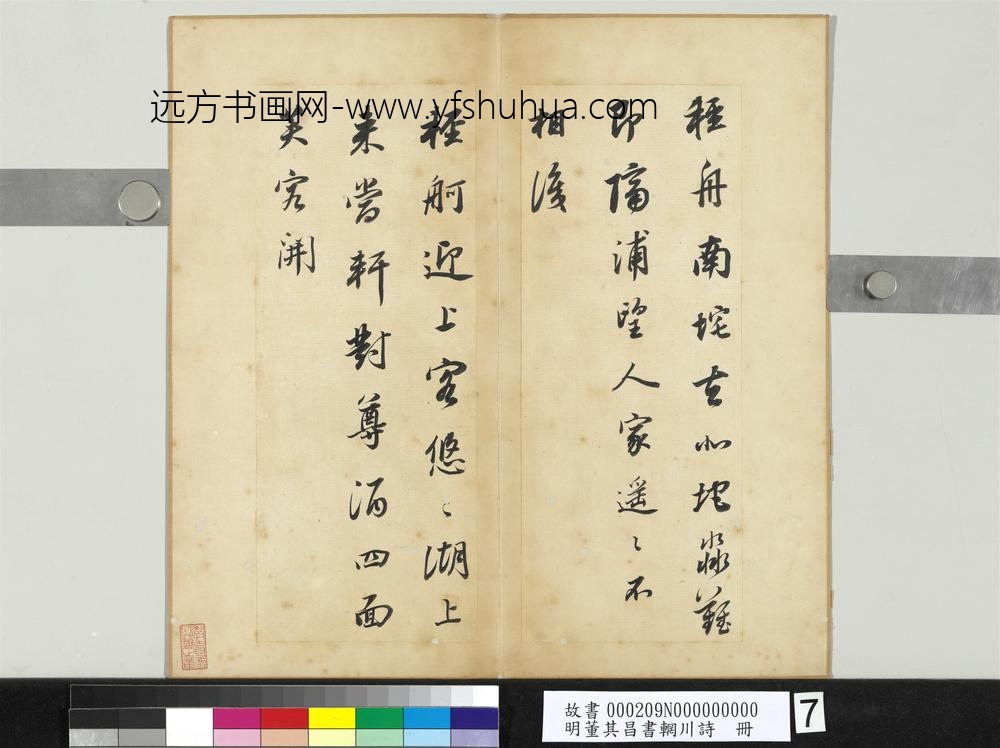 远方书画网-www.yfshuhua.com
輕舟南垞去北垞淼難
即隔浦望人家遥〻不
相識
輕舸迎上客悠〻湖上
來當軒對尊酒四面
芙容開
故書 000209N000000000
明董其昌書輞川詩 冊
7